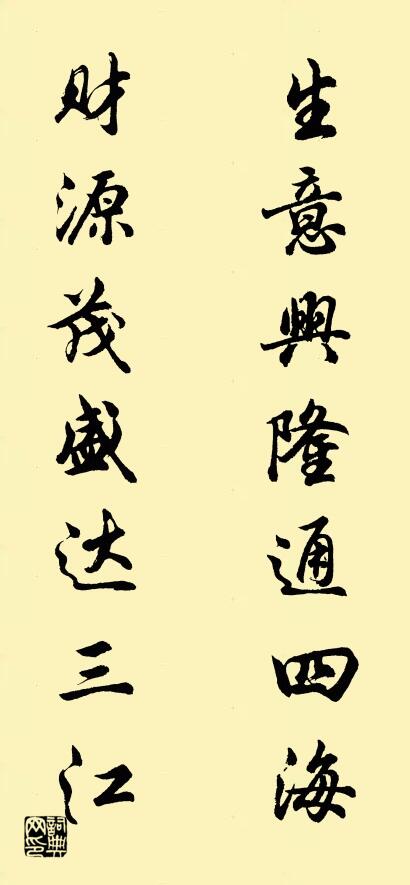 生意興隆通四海
财源茂盛达三江
詞典网印